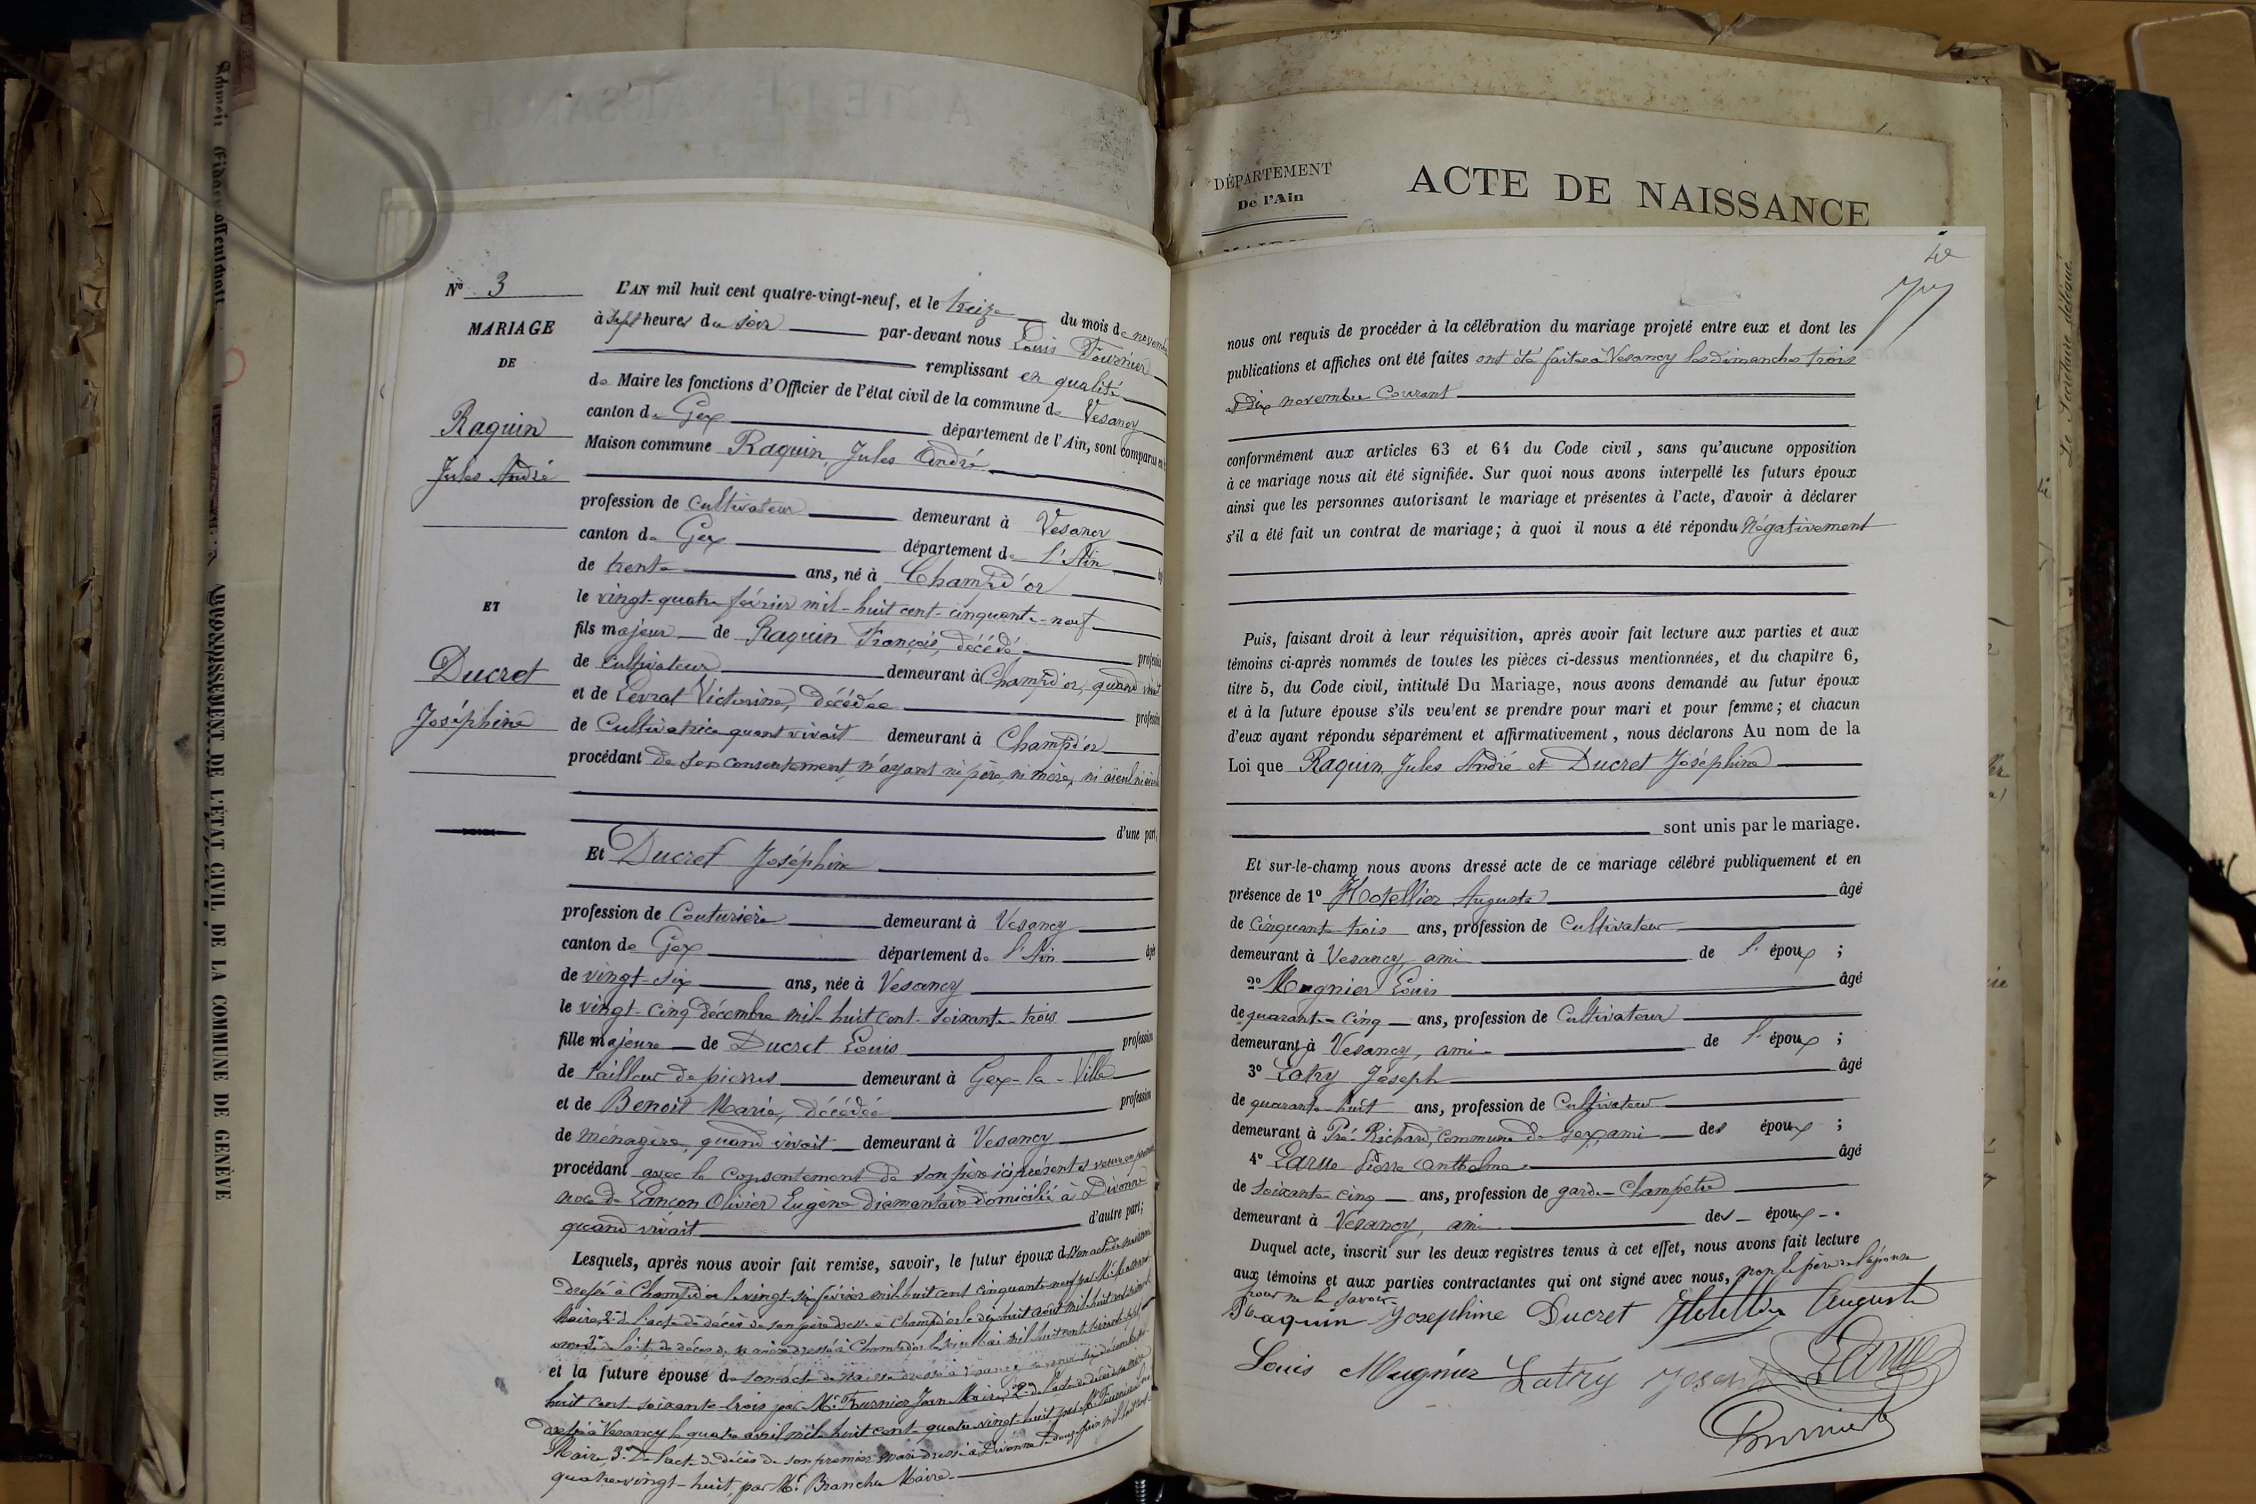 N° 3
MARIAGE
DE
Raquin
Jules André
ET
Ducret
Joséphine
L'AN mil huit cent quatre-vingt-neuf, et le treize du mois de novembre
à sept heures du soir par-devant nous Louis Fournier
remplissant en qualité
de Maire les fonctions d'Officier de l'état civil de la commune de Vesancy
canton de Gex département de l'Ain, sont comparus en
Maison commune Raquin, Jules André
profession de cultivateur demeurant à Vesancy
canton de Gex département de l'Ain
de trente ans, né à Champd'or
le vingt-quatre février mil-huit cent-cinquante-neuf
fils majeur de Raquin François, décédé profession
de cultivateur demeurant à Champd'or, quand vivait
et de Levrat Victorine, décédée profession
de Cultivatrice quant vivait demeurant à Champd'or
procédant de son consentement, n'ayant ni père, ni mère, ni aïeul ni
d'une part,
Et Ducret Joséphine
profession de Couturière demeurant à Vesancy
canton de Gex département de l'Ain âgée
de vingt-six ans, née à Vesancy
le vingt-cinq décembre mil-huit cent-soixante-trois
fille majeure de Ducret Louis profession
de tailleur de pierres demeurant à Gex-la-Ville
et de Benoit Marie, décédée profession
de ménagère, quand vivait demeurant à Vesancy
procédant avec le consentement de son père ici présent et veuve en premières
noce de Lançon Olivier Eugène diamantaire domicilié à Divonne
quand vivait d'autre part;
Lesquels, après nous avoir fait remise, savoir, le futur époux de son acte de naissance
dressé à Champd'or le vingt-six février mil-huit cent cinquante-neuf par Mr
Maire, 2° de l'acte de décès de son père dressé à Champd'or le dix huit août mil-huit cent
et la future épouse de son acte de naissance dressé à Vesancy le décembre
huit cent soixante-trois par Mr. Fournier Jean Maire, 2° de l'acte de décès de sa mère
dressé à Vesancy le quatre avril mil-huit cent-quatre vingt-huit par Mr Fournier
Maire, 3° De l'acte de décès de son premier mari dressé à Divonne le douze juin mil huit cent
quatre-vingt-huit, par Mr. Branche Maire.
DÉPARTEMENT
De l'Ain
ACTE DE NAISSANCE
nous ont requis de procéder à la célébration du mariage projeté entre eux et dont les
publications et affiches ont été faites ont été faites à Vesancy les dimanches trois
et dix novembre Courant
conformément aux articles 63 et 64 du Code civil, sans qu'aucune opposition
à ce mariage nous ait été signifiée. Sur quoi nous avons interpellé les futurs époux
ainsi que les personnes autorisant le mariage et présentes à l'acte, d'avoir à déclarer
s'il a été fait un contrat de mariage; à quoi il nous a été répondu Négativement
Puis, faisant droit à leur réquisition, après avoir fait lecture aux parties et aux
témoins ci-après nommés de toutes les pièces ci-dessus mentionnées, et du chapitre 6,
titre 5, du Code civil, intitulé Du Mariage, nous avons demandé au futur époux
et à la future épouse s'ils veulent se prendre pour mari et pour femme; et chacun
d'eux ayant répondu séparément et affirmativement, nous déclarons Au nom de la
Loi que Raquin Jules André et Ducret Joséphine
sont unis par le mariage.
Et sur-le-champ nous avons dressé acte de ce mariage célébré publiquement et en
présence de 1° Hotellier Auguste âgé
de cinquante-trois ans, profession de Cultivateur
demeurant à Vesancy, ami de l' époux ;
2° Mugnier Louis âgé
de quarante-cinq ans, profession de Cultivateur
demeurant à Vesancy, ami de l' époux ;
3° Latry Joseph âgé
de quarante-huit ans, profession de Cultivateur
demeurant à Pré-Richard, commune de Gex, ami des époux ;
4° Larue Pierre Anthelme âgé
de soixante-cinq ans, profession de garde-Champêtre
demeurant à Vésancy, ami des époux.
Duquel acte, inscrit sur les deux registres tenus à cet effet, nous avons fait lecture
aux témoins et aux parties contractantes qui ont signé avec nous, non le père de l'épouse
pour ne le savoir.
Raquin Josephine Ducret Hotellier Auguste
Louis Mugnier Latry Joseph Larue
Fournier
ARRONDISSEMENT DE L'ÉTAT CIVIL DE LA COMMUNE DE GENÈVE
Le Secrétaire délégué